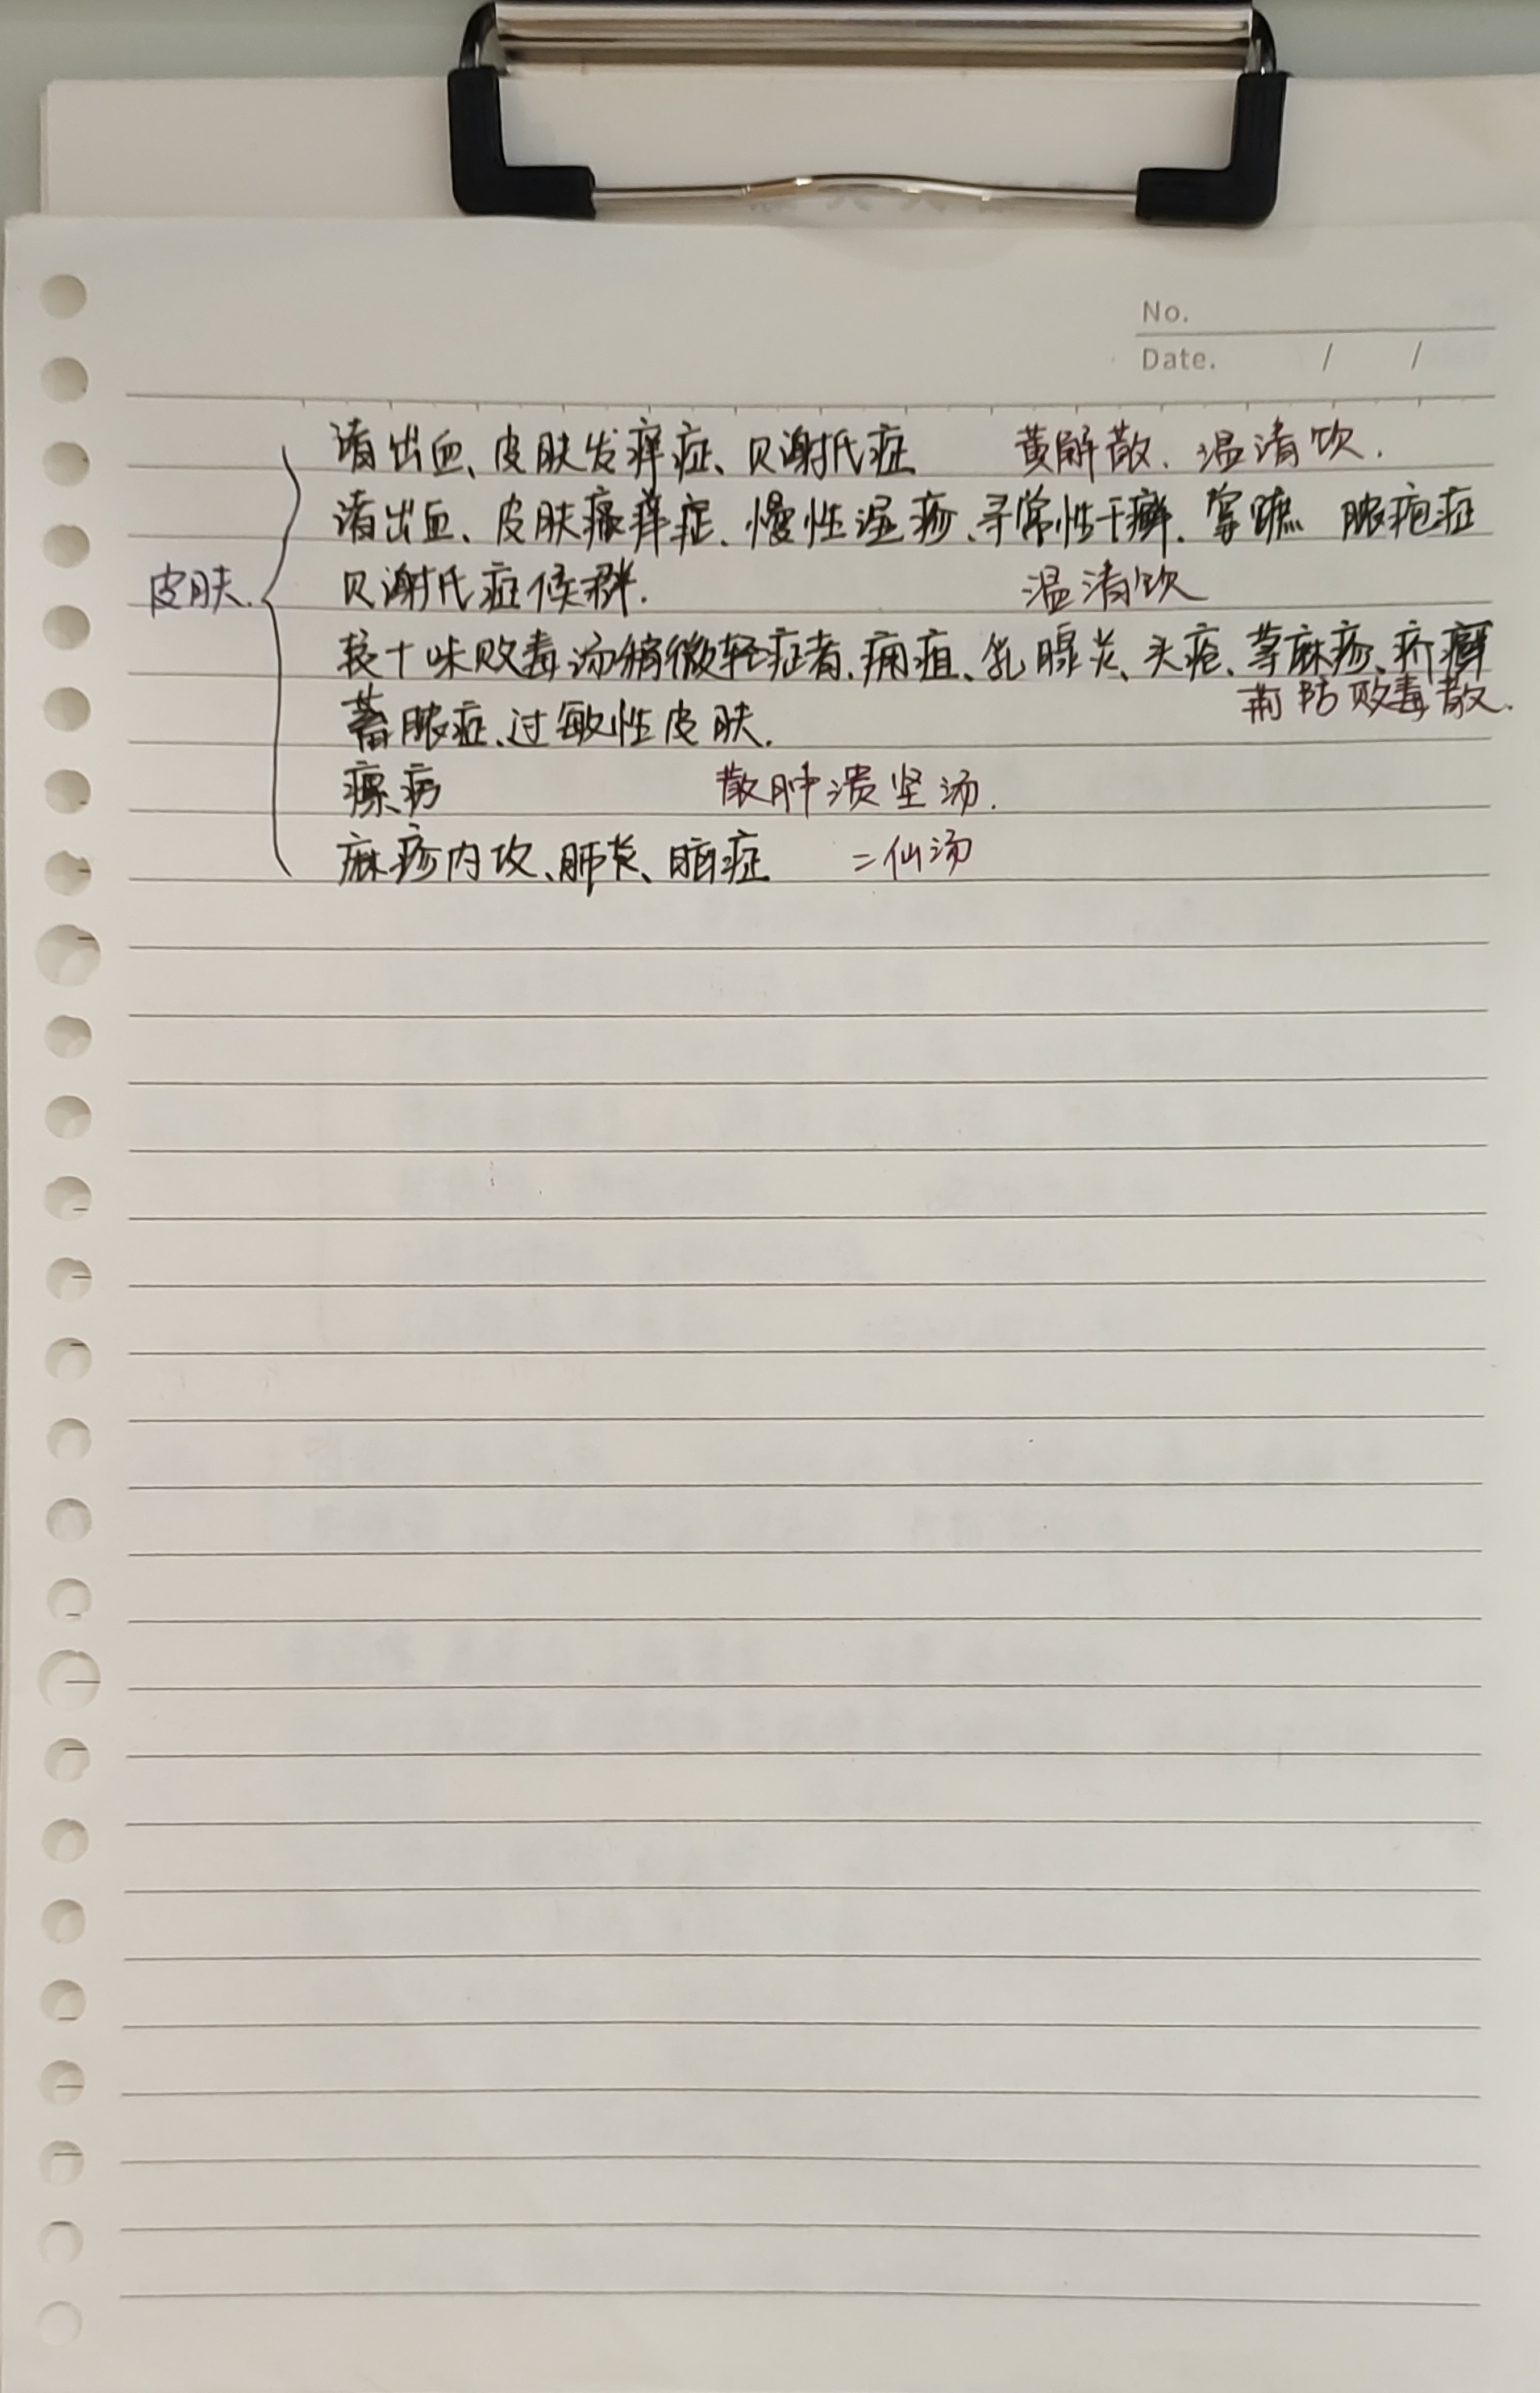 No.
Date. / /
诸出血、皮肤发痒症、贝谢氏症 黄解散、温清饮.
诸出血、皮肤瘙痒症、慢性湿疹、寻常性干癣、 脓疱症
皮肤. 贝谢氏症候群. 温清饮
较十味败毒汤稍微轻症者、痈疽、乳腺炎、头疮、荨麻疹、疥癣
荆防败毒散.
蓄脓症、过敏性皮肤.
瘰疬 散肿溃坚汤.
麻疹内攻、肺炎、脑症 二仙汤